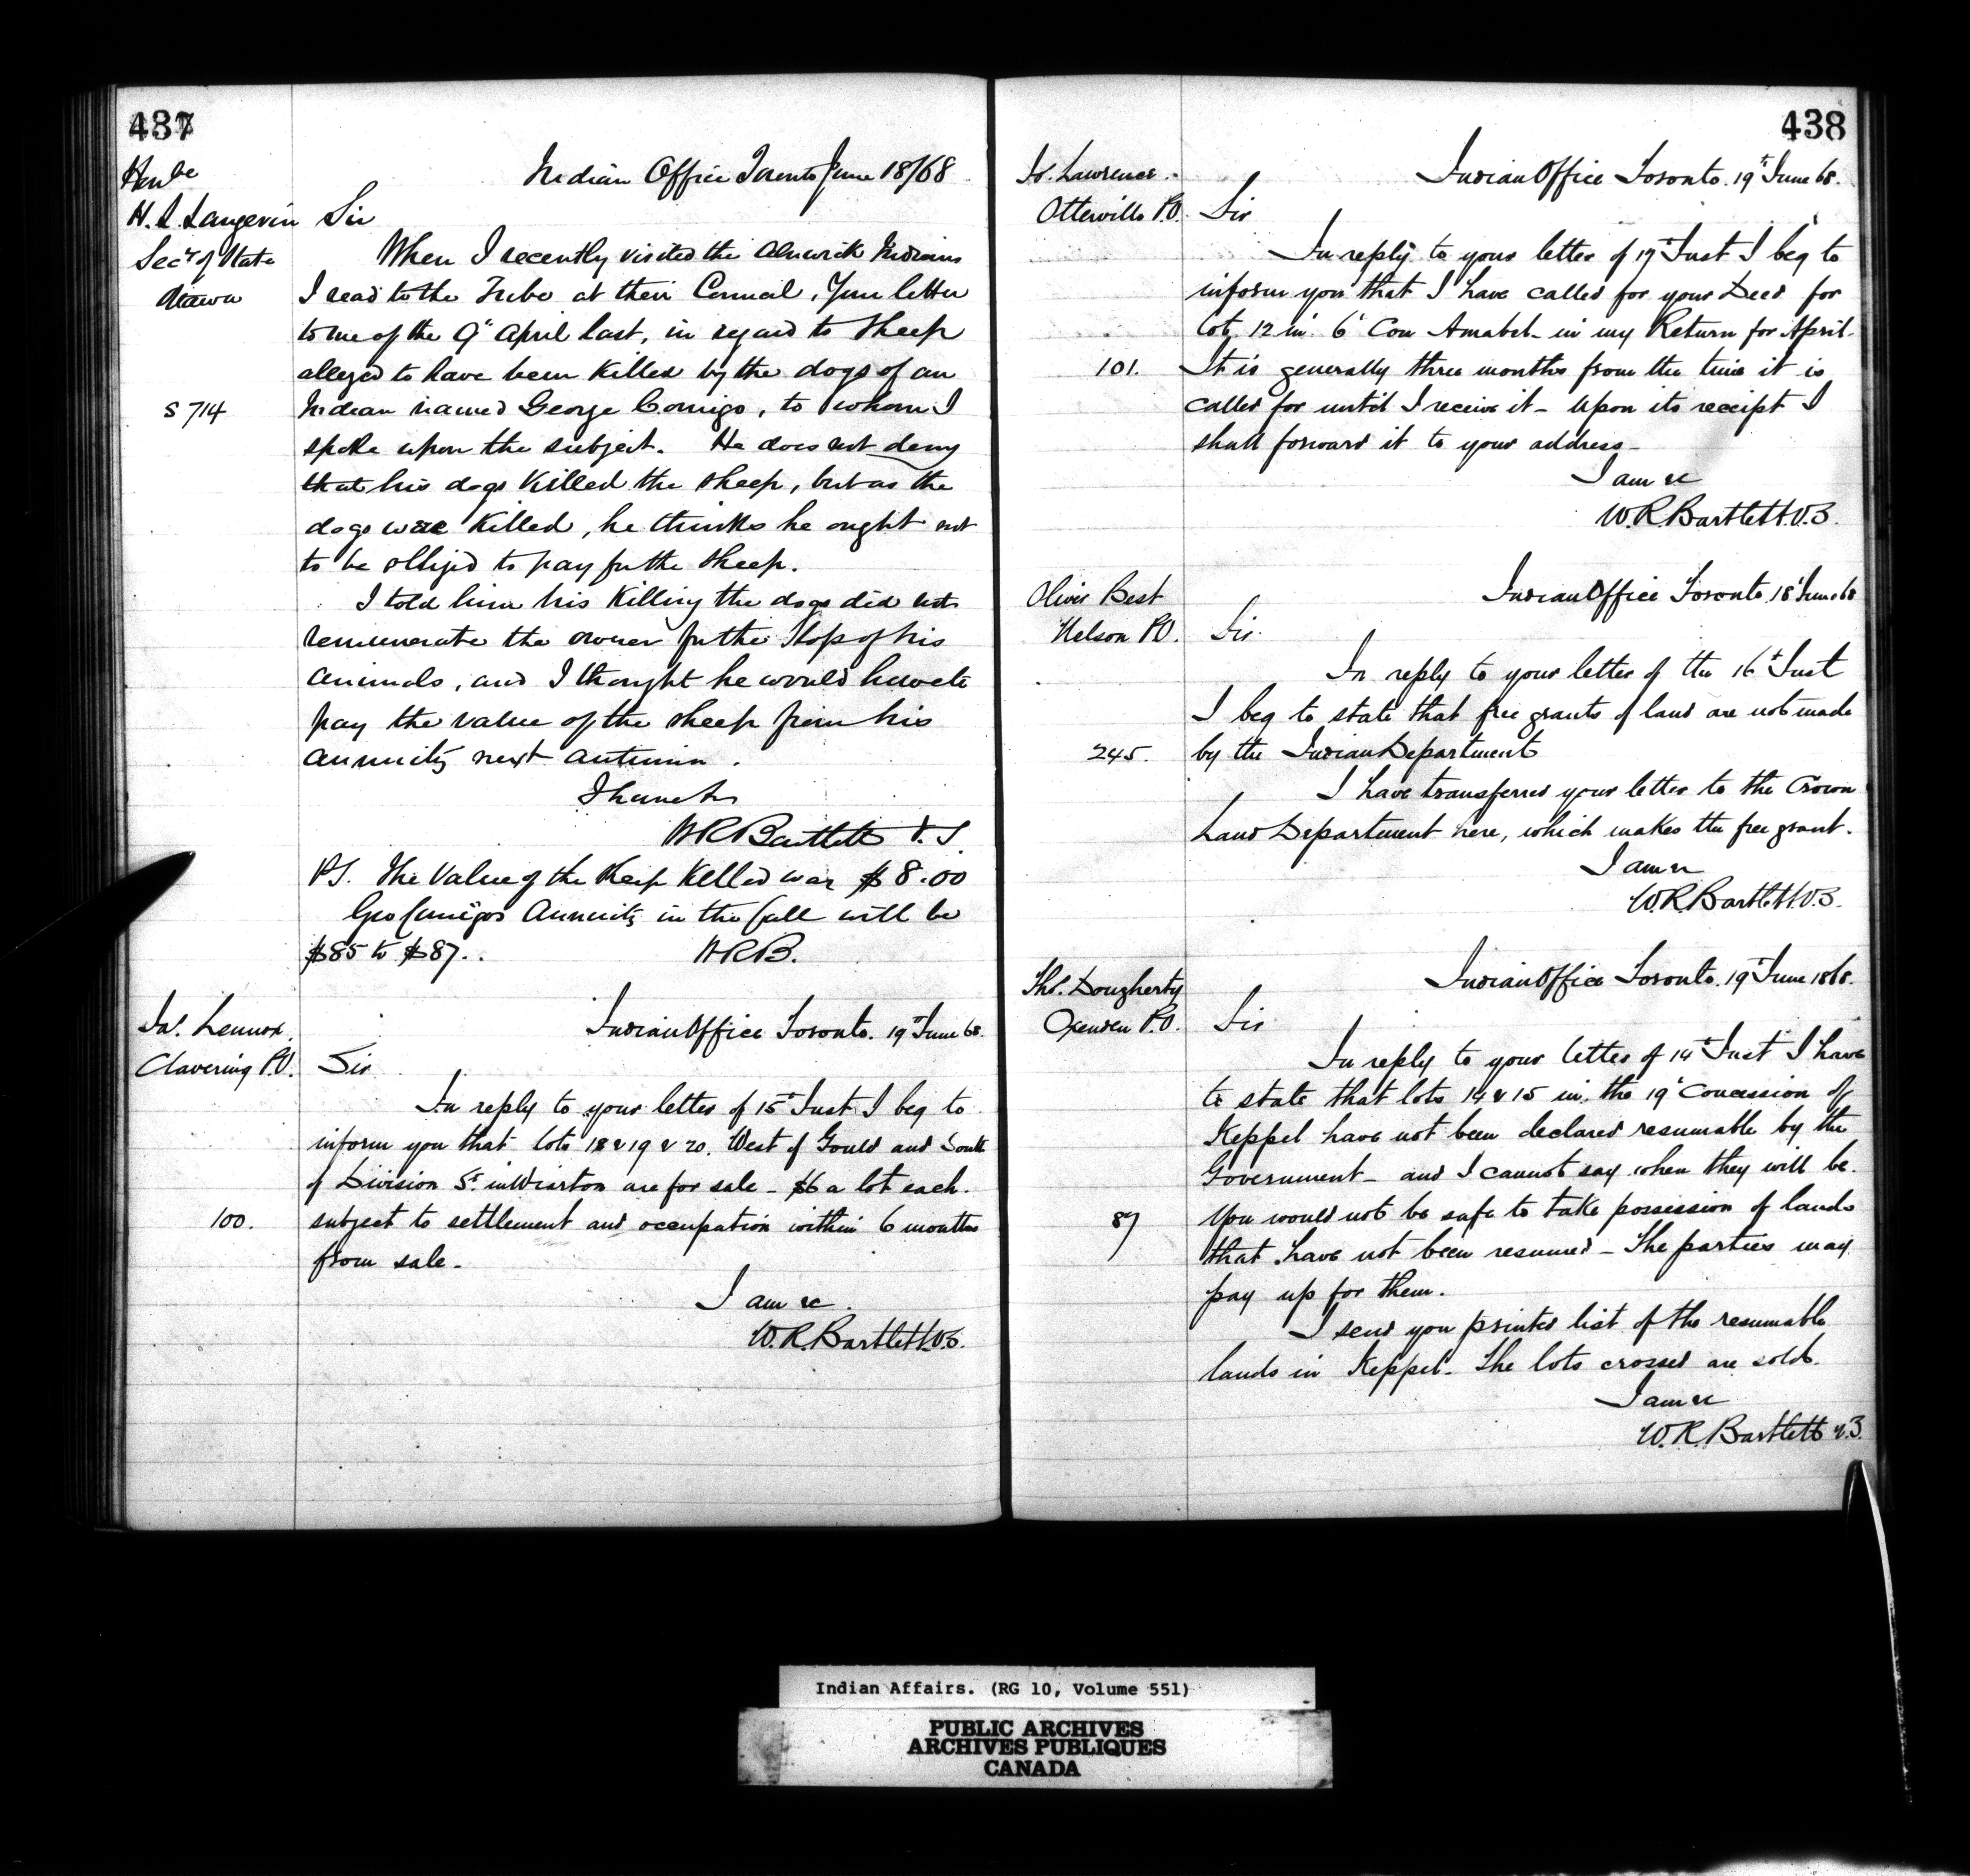 437
Honble
H. L. Langevin
Secy of State
Ottawa
S 714
Indian Office Toronto June 18/68
Sir
When I recently visited the Alnwick Indians
I read to the Tribe at their Council, Your letter
to me of the 9th April last, in regard to Sheep
alleged to have been killed by the dogs of an
Indian named George Comigo, to whom I
spoke upon the subject. He does not deny
that his dogs killed the sheep, but as the
dogs were killed, he thinks he ought not
to be obliged to pay for the sheep.
I told him his killing the dogs did not
remunerate the owner for the loss of his
animals, and I thought he would have to
pay the value of the sheep from his
annuity next autumn.
I have &c
W R Bartlett V.S.
P.S. The Value of the sheep killed was $8.00
Geo Comigos Annuity in the fall will be
$85 to $87..
W R B.
Jas. Lennox.
Clavering P.O.
100.
Indian Office Toronto. 19th June 68.
Sir
In reply to your letter of 15th Inst I beg to
inform you that lots 18 & 19 & 20. West of Gould and South
of Division St. in Wiarton are for sale - $6 a lot each.
subject to settlement and occupation within 6 months
from sale -
I am &c.
W. R. Bartlett. V.S.
438
Lawrence.
Otterville P.O.
101.
Indian Office Toronto. 19th June 68.
Sir
In reply to your letter of 17th Inst I beg to
inform you that I have called for your Deed for
lot 12 in 6th Con Amabel - in my Return for April.
It is generally three months from the time it is
called for until I receive it - Upon its receipt I
shall forward it to your address -
I am &c
W. R. Bartlett. V.S.
Oliver Best
Nelson P.O.
245.
Indian Office Toronto 18th June 68
Sir
In reply to your letter of the 16th Inst
I beg to state that free grants of land are not made
by the Indian Department
I have transferred your letter to the Crown
Land Department here, which makes the free grant.
I am &c
W. R. Bartlett. V.S.
Thos. Dougherty
Oxenden P.O.
87
Indian Office Toronto. 19th June 1868.
Sir
In reply to your letter of 14th Inst I have
to state that lots 14 & 15 in the 19th Concession of
Keppel have not been declared resumable by the
Government - and I cannot say when they will be.
You would not be safe to take possession of lands
that have not been resumed - The parties may
pay up for them.
I send you printed list of the resumable
lands in Keppel. The lots crossed are sold.
I am &c
W. R. Bartlett V.S.
Indian Affairs. (RG 10, Volume 551)
PUBLIC ARCHIVES
ARCHIVES PUBLIQUES
CANADA